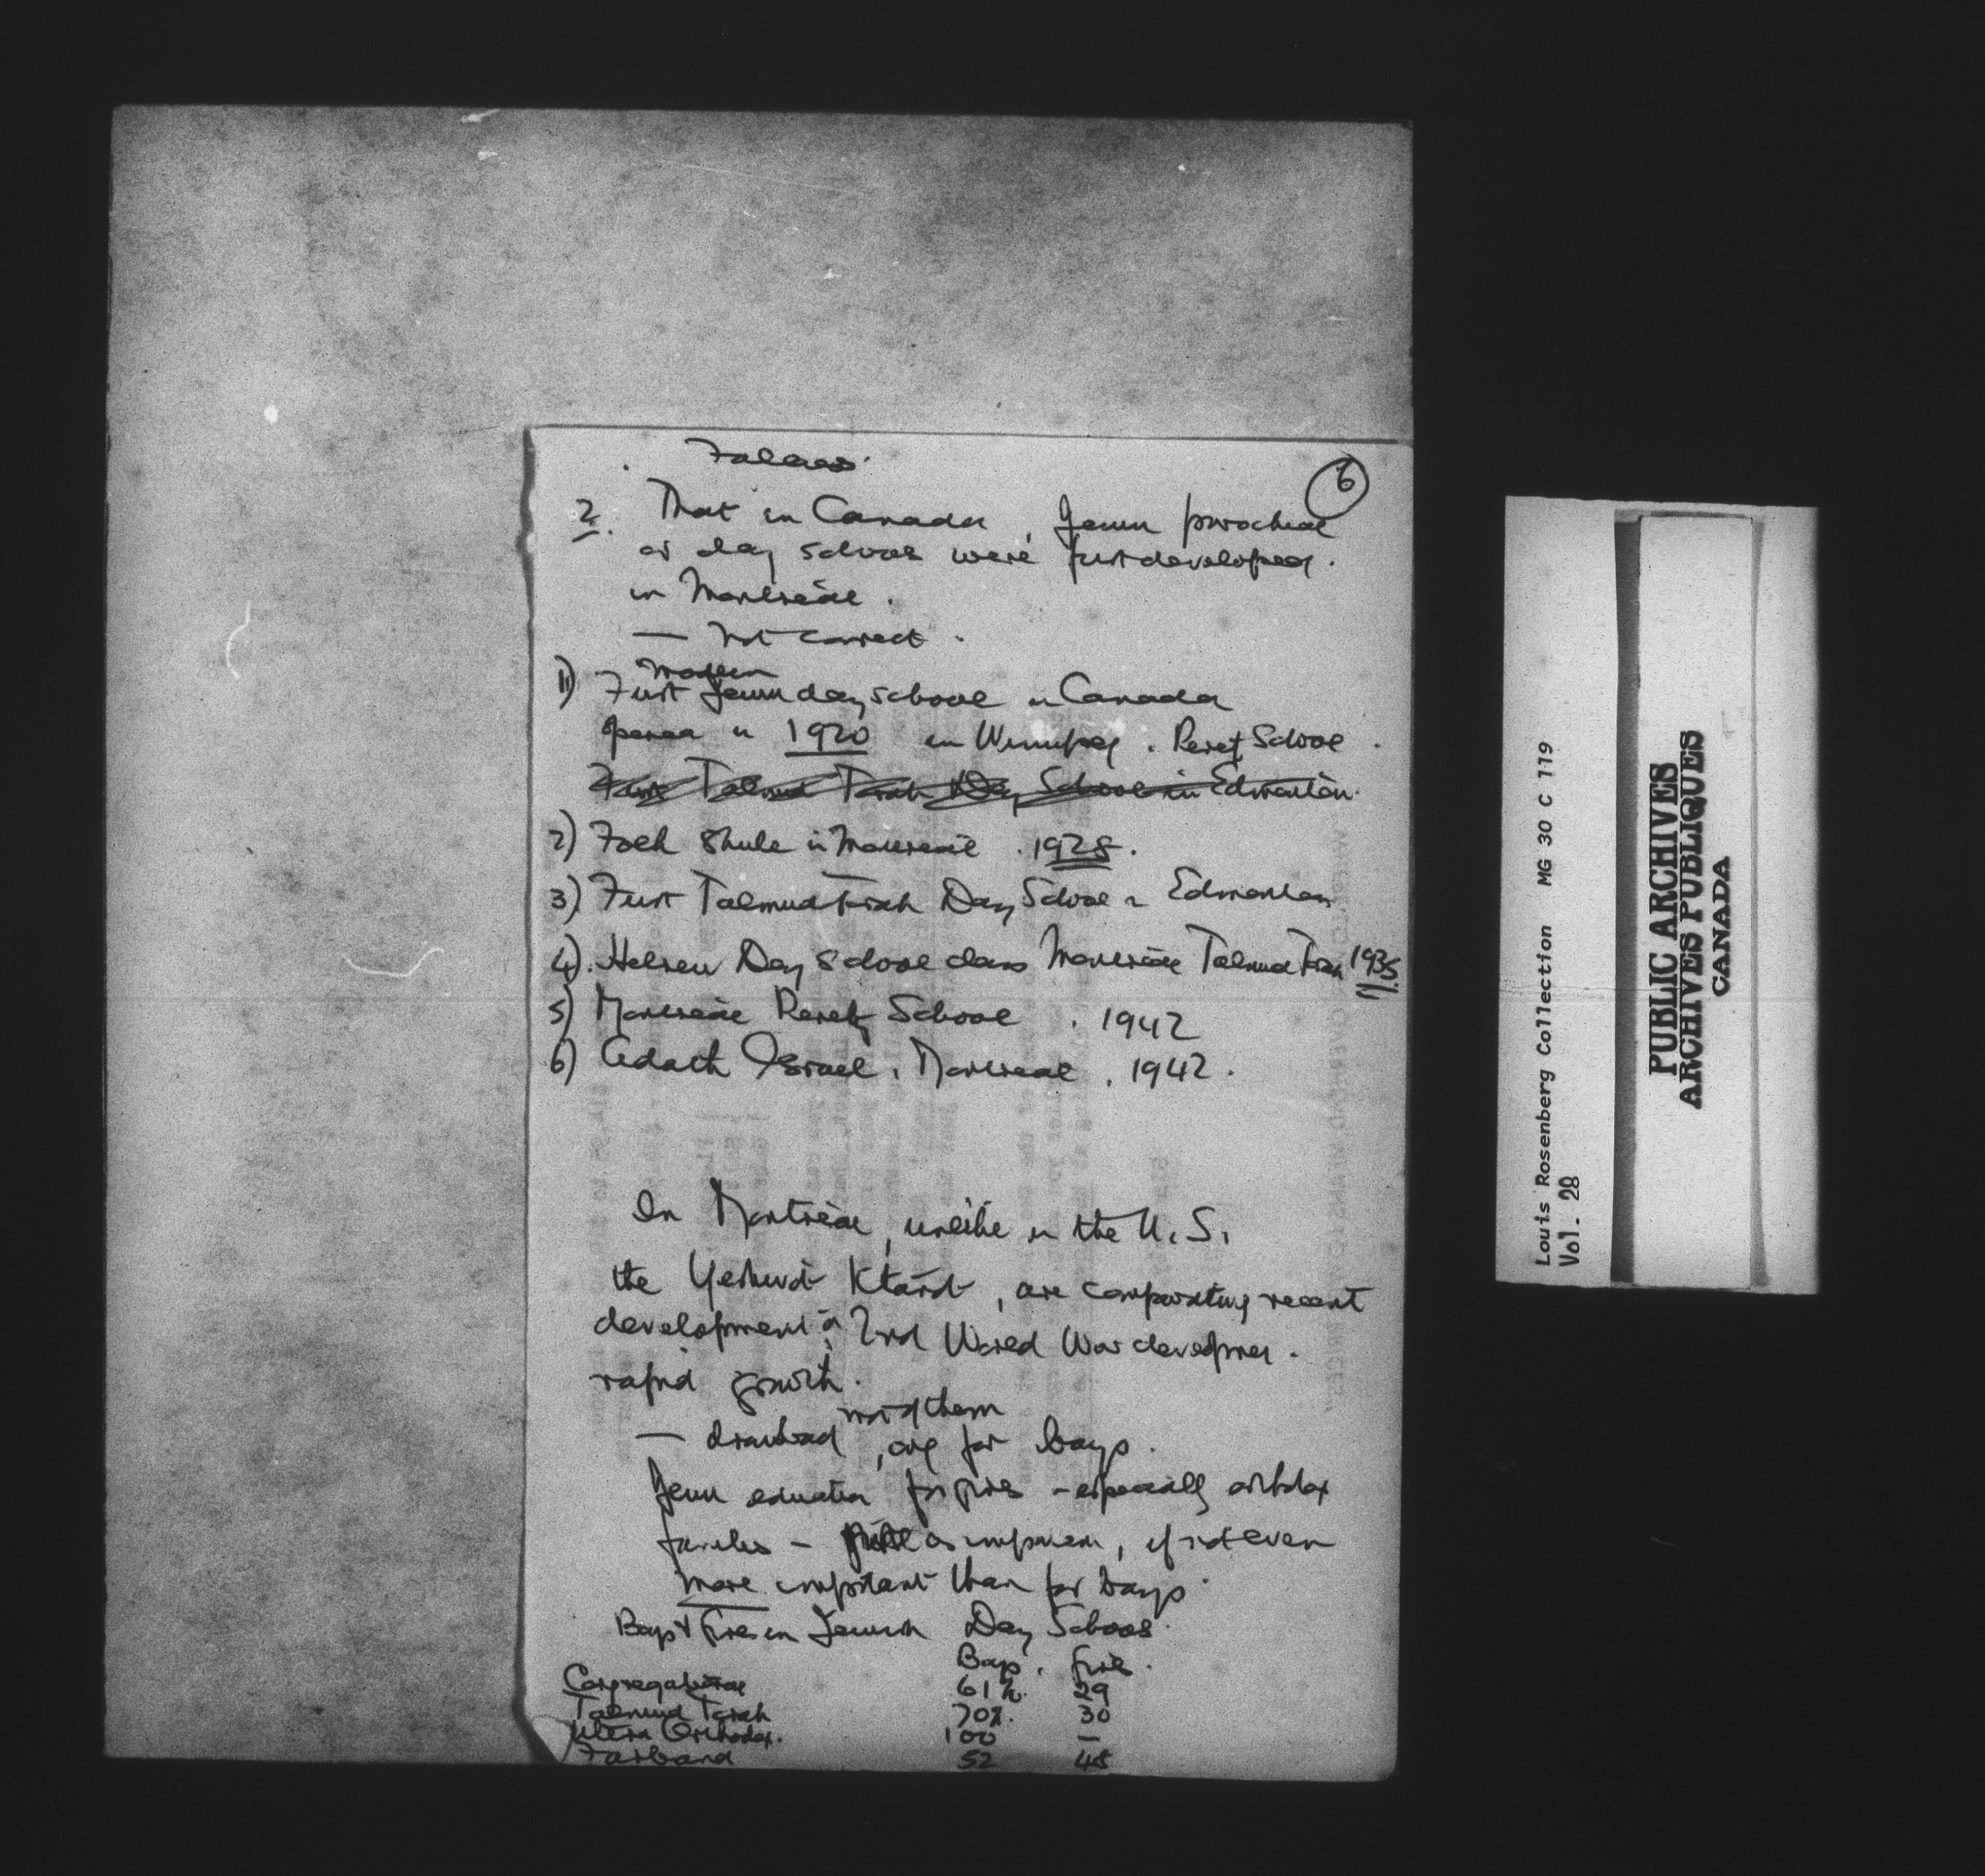 Fallacies
6
2. That in Canada, Jewish parochial
or day schools were first developed.
in Montreal.
— Not correct.
modern
1) First Jewish day school in Canada
opened in 1920 in Winnipeg. Peretz School.
First Talmud Torah Day School in Edmonton.
2) Folk Shule in Montreal. 1928.
3) First Talmud Torah Day School in Edmonton
4). Hebrew Day School class Montreal Talmud Torah 1935
5) Montreal Peretz School. 1942
6) Adath Israel, Montreal, 1942.
In Montreal, unlike in the U.S.
the Yeshivot Ktanot, are comparatively recent
development 2nd World War
rapid growth.
most of them
— drawback, only for boys.
Jewish education for girls - especially orthodox
families - as important, if not even
more important than for boys.
Boys & Girls in Jewish Day Schools.
Boys. Girls.
Congregational 61%. 29
Talmud Torah 70%. 30
Ultra Orthodox. 100 —
Farband 52 48
Louis Rosenberg Collection MG 30 C 119
Vol. 28
PUBLIC ARCHIVES
ARCHIVES PUBLIQUES
CANADA